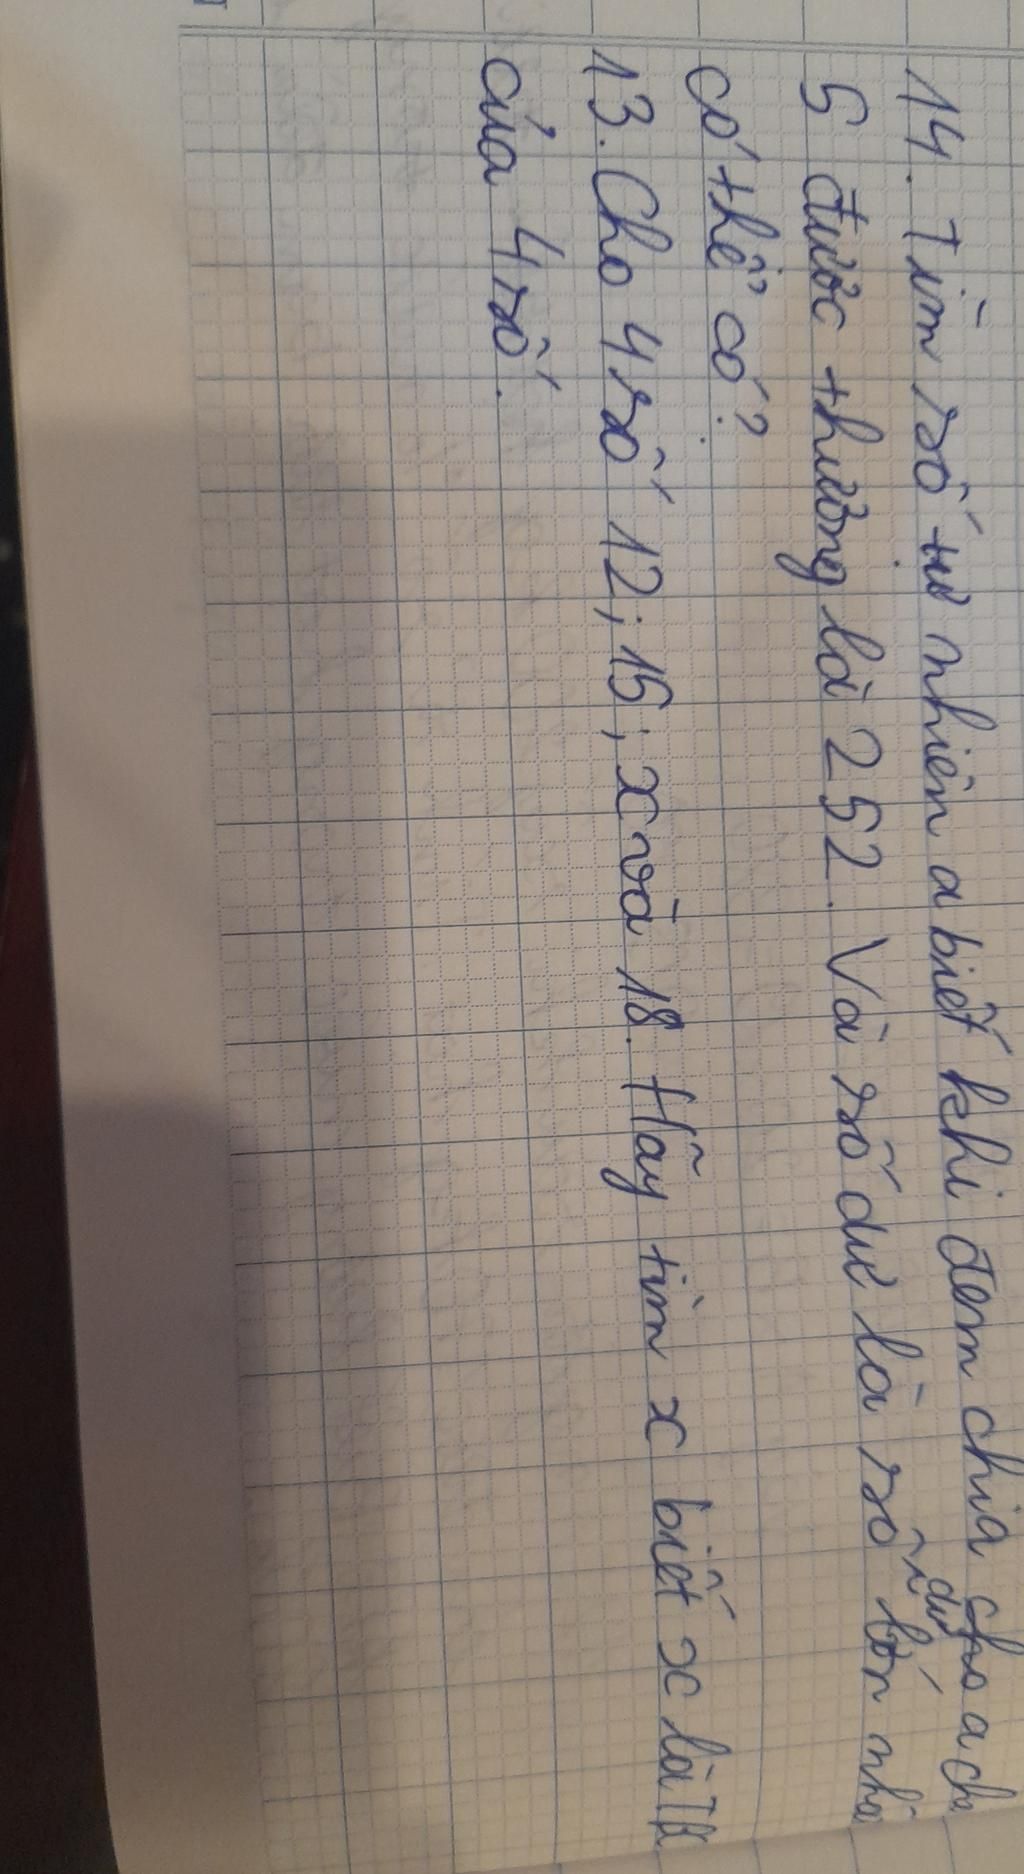 14. Tìm số tự nhiên a biết khi đem chia cho a cho
5 được thương là 252. Và số dư là số dư lớn nhất
có thể có?
13. Cho 4 số 12; 15; x và 18. Hãy tìm x biết x là TBC
của 4 số.